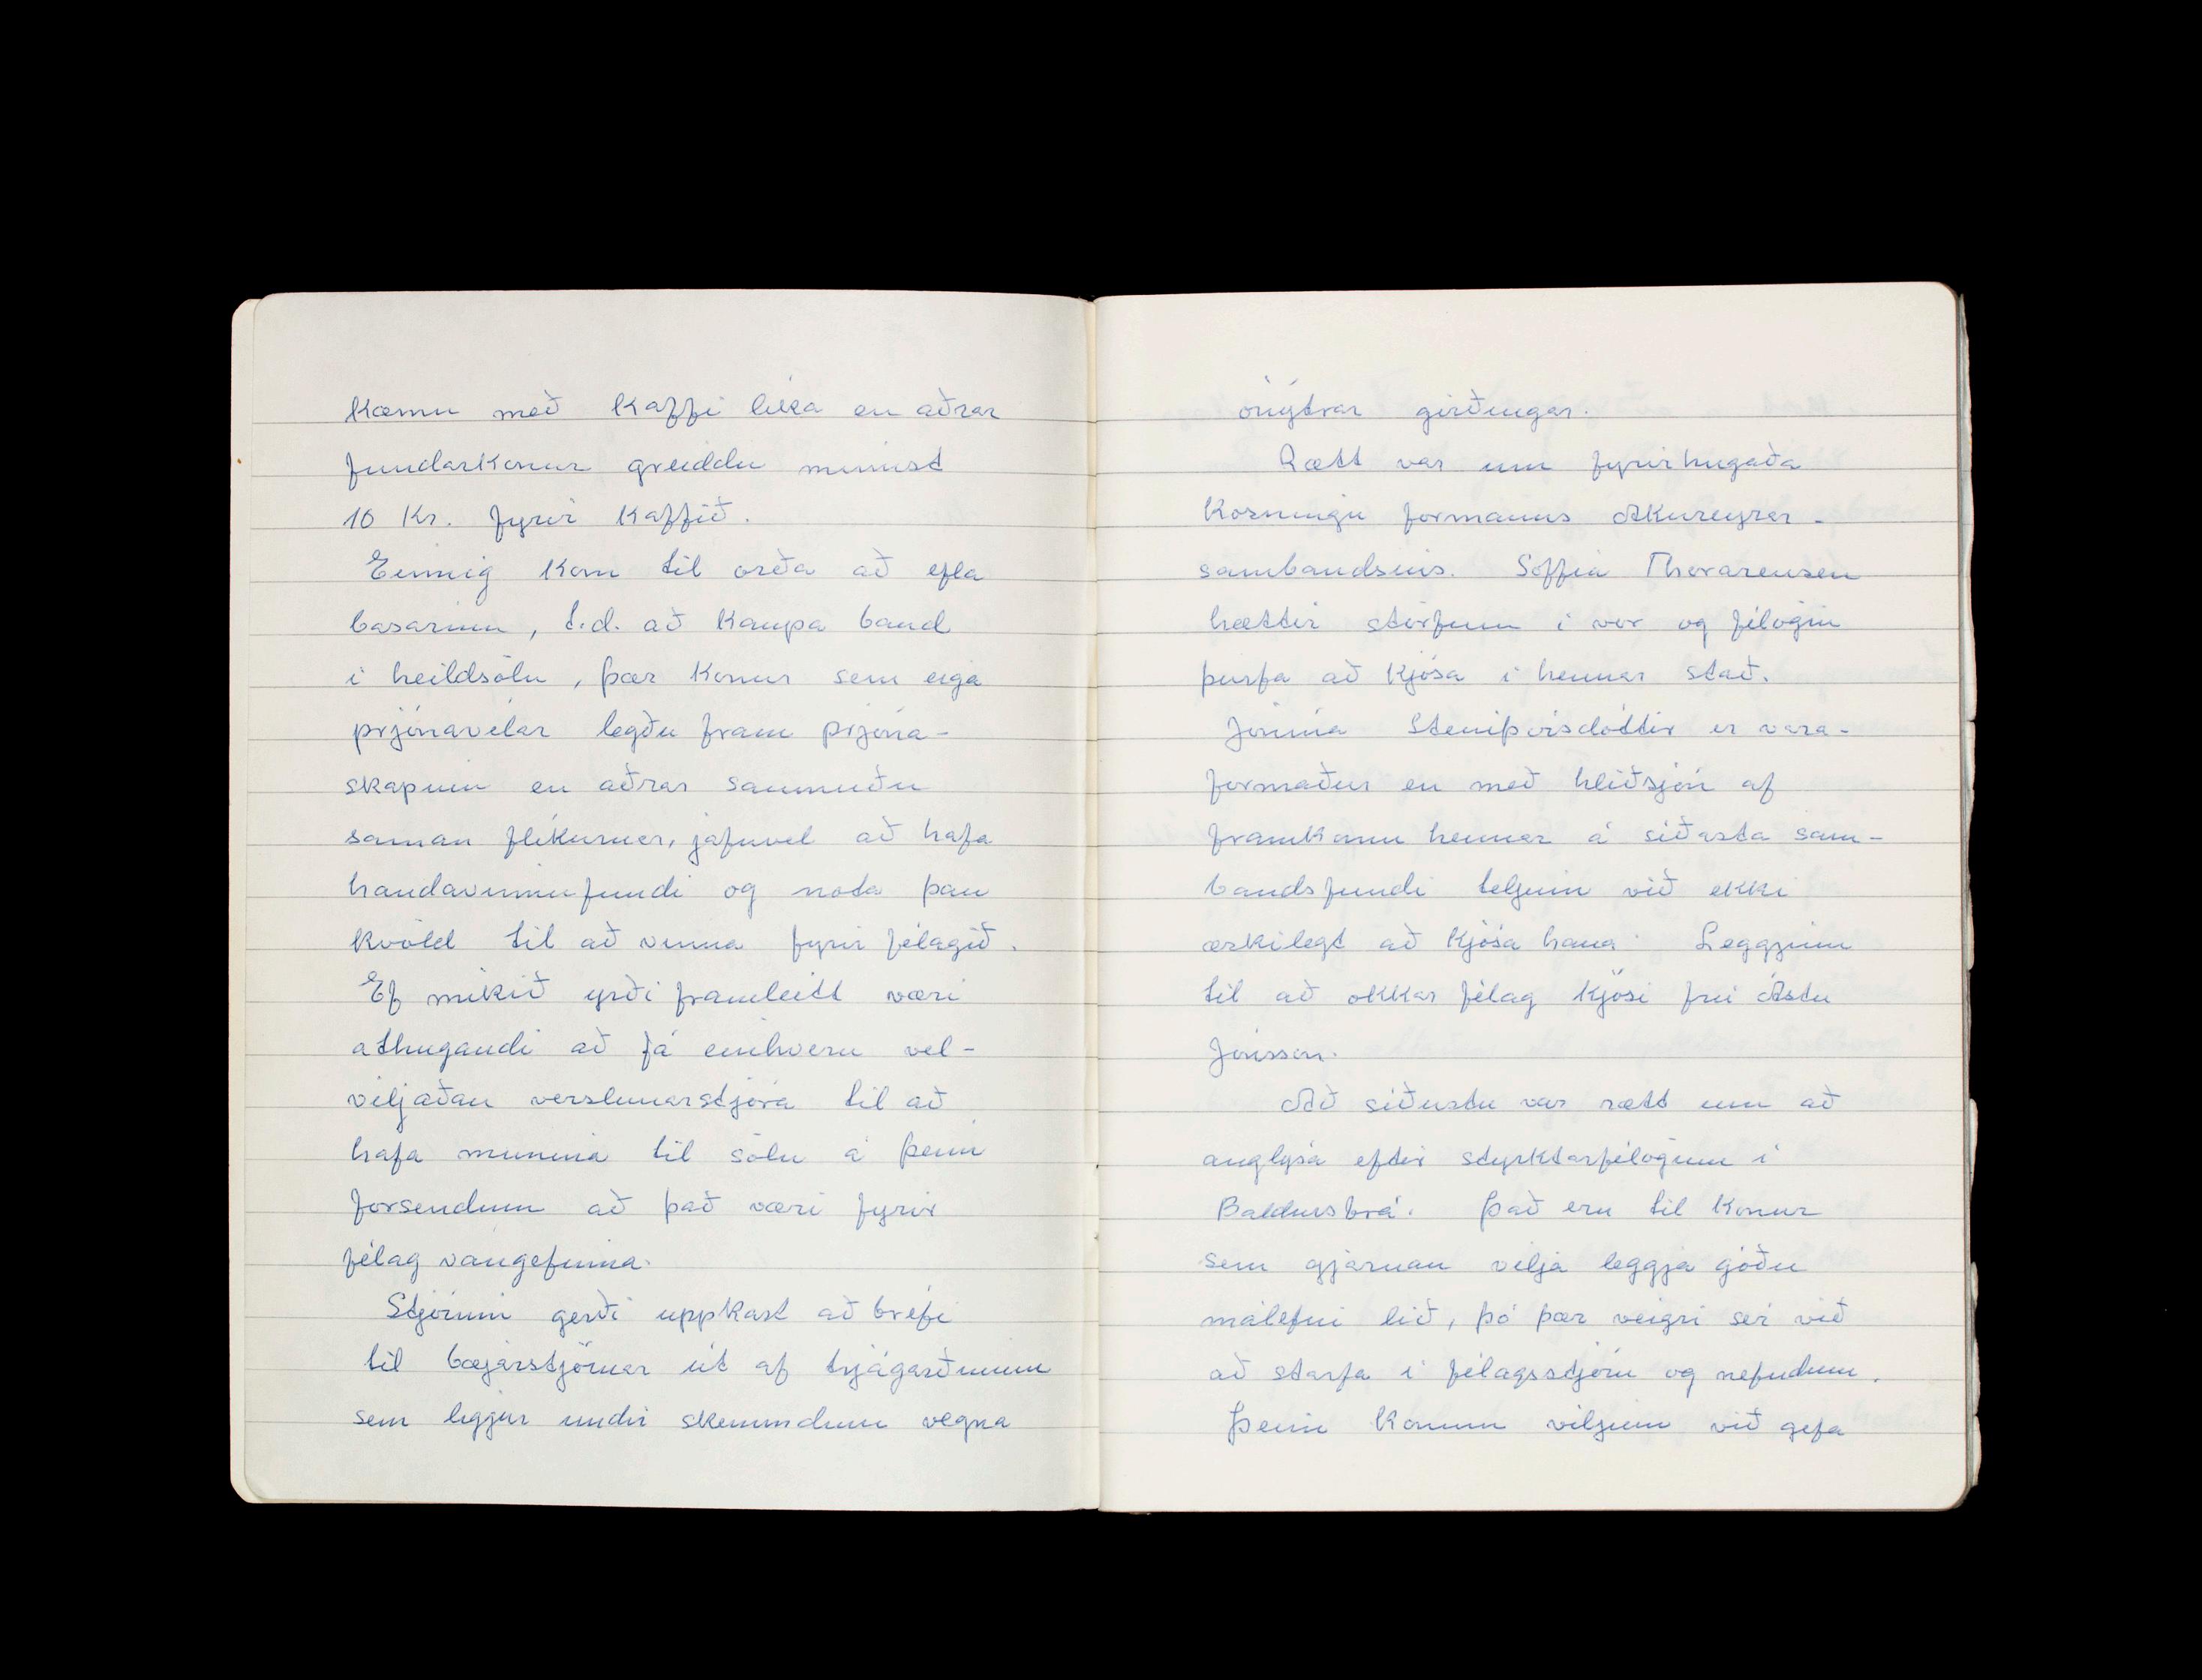 kæmu með kaffi líka en aðrar
fundarkonur greiddu minnst
10 kr. fyrir kaffið.
Einnig kom til orða að efla
basarinn, t.d. að kaupa band
í heildsölu, þær konur sem eiga
prjónavélar legðu fram prjóna-
skapinn en aðrar saumuðu
saman flíkurnar, jafnvel að hafa
handavinnufundi og nota þau
kvöld til að vinna fyrir félagið.
Ef mikið yrði framleitt væri
athugandi að fá einhvern vel-
viljaðan verslunarstjóra til að
hafa munina til sölu á þeim
forsendum að það væri fyrir
félag vangefinna.
Stjórnin gerði uppkast að bréfi
til bæjarstjórnar út af trjágarðinum
sem liggur undir skemmdum vegna
ónýtrar girðingar.
Rætt var um fyrirhugaða
kosningu formanns Akureyrar-
sambandsins. Soffía Thorarensen
hættir störfum í vor og félögin
þurfa að kjósa í hennar stað.
Jónína Steinþórsdóttir er vara-
formaður en með hliðsjón af
framkomu hennar á síðasta sam-
bandsfundi teljum við ekki
æskilegt að kjósa hana. Leggjum
til að okkar félag kjósi frú Ástu
Jónsson.
Að síðustu var rætt um að
auglýsa eftir styrktarfélögum í
Baldursbrá. Það eru til konur
sem gjarnan vilja leggja góðu
málefni lið, þó þær veigri sér við
að starfa í félagsstjórn og nefndum.
Þeim konum viljum við gefa